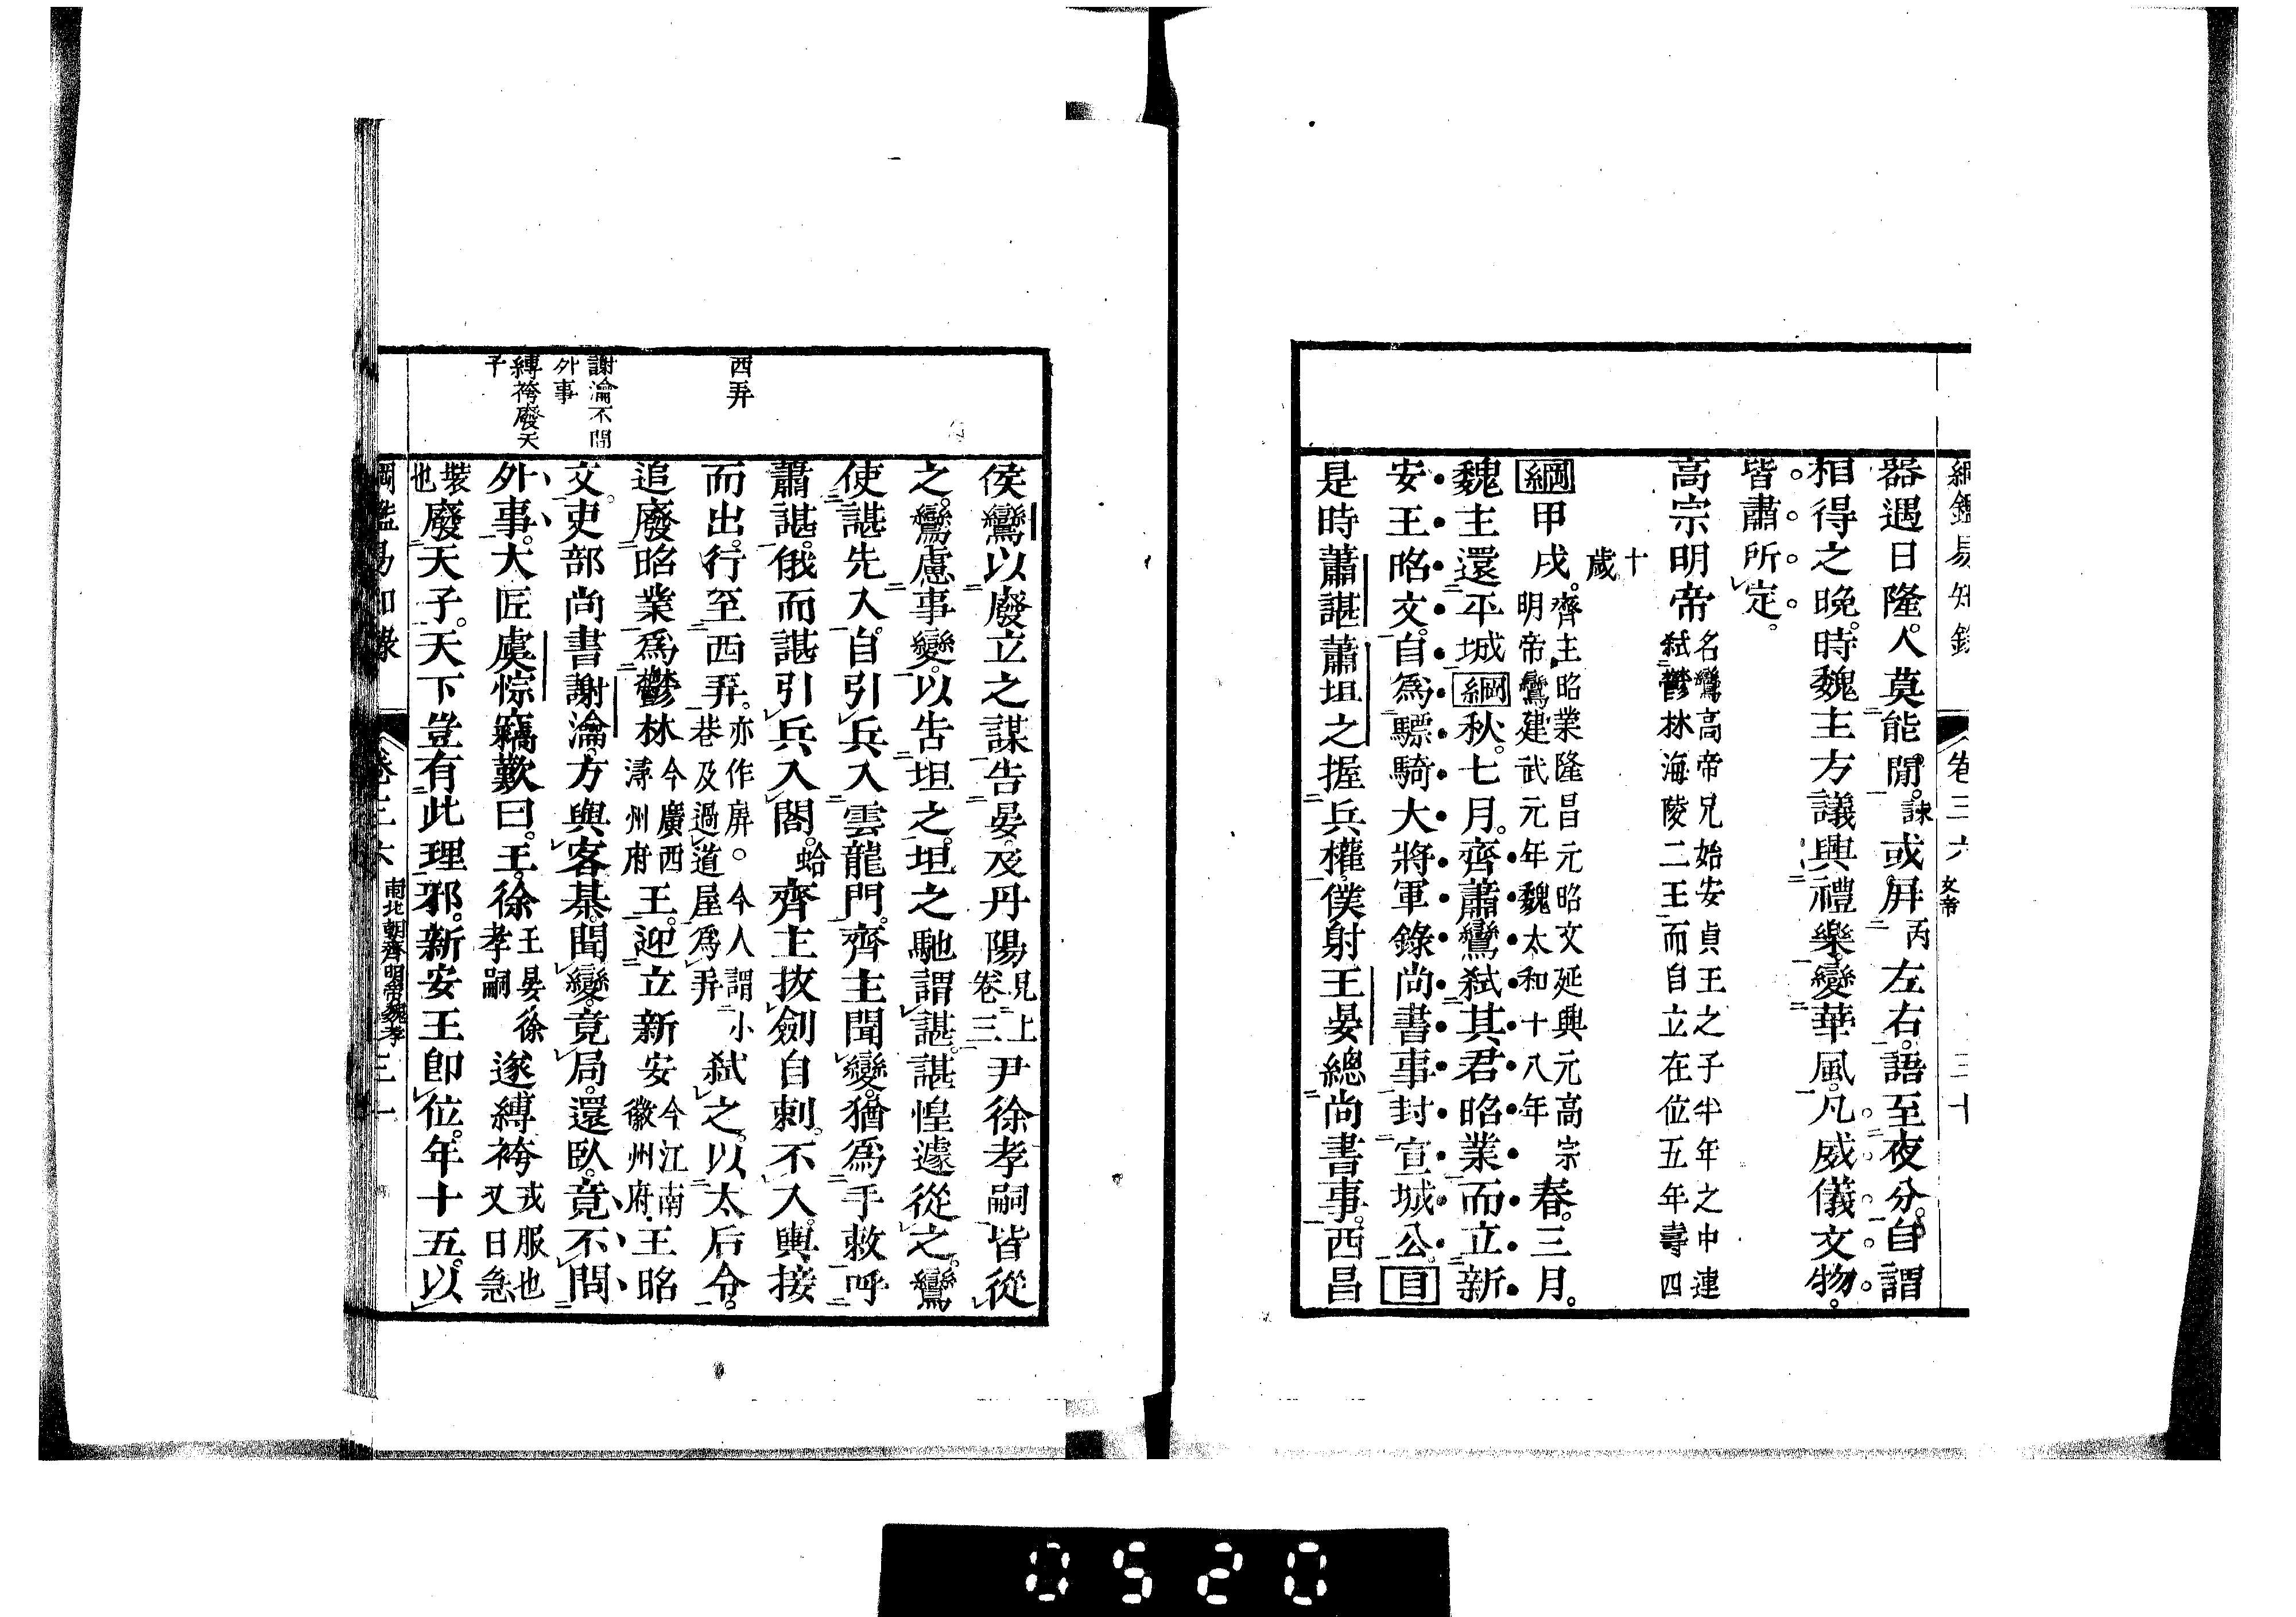 綱鑑易知錄 卷三六 文帝 三十
器遇日隆。人莫能間。諫或屏丙左右。語至夜分。自謂
相得之晚。時魏主方議興禮樂。變華風。凡威儀文物。
皆肅所定。
高宗明帝名鸞高帝兄始安貞王之子半年之中連
弑鬱林海陵二王而自立在位五年壽四
十
歲
綱甲戌。齊主昭業隆昌元昭文延興元高宗
明帝鸞建武元年魏太和十八年春。三月。
魏主還平城綱秋。七月。齊蕭鸞弑其君昭業而立新
安王昭文。自爲驃騎大將軍錄尚書事封宣城公。目
是時蕭諶蕭坦之握兵權。僕射王晏總尚書事。西昌
侯鸞以廢立之謀告晏。及丹陽見上
卷三尹徐孝嗣皆從
之。鸞慮事變。以告坦之。坦之馳謂諶。諶惶遽從之。鸞
使諶先入。自引兵入雲龍門。齊主聞變。猶爲手敕呼
蕭諶。俄而諶引兵入閤。蛤齊主拔劍自刺。不入。輿接
而出。行至西弄。亦作屏。今人謂小
巷及過道屋爲弄弑之。以太后令。
追廢昭業爲鬱林今廣西
潯州府王。迎立新安今江南
徽州府王昭
文。吏部尚書謝瀹。方與客棊。聞變。竟局。還臥。竟不問
外事。大匠虞悰竊歎曰。王。徐王晏徐
孝嗣遂縛袴戎服也
又曰急
裝
也廢天子。天下豈有此理邪。新安王卽位。年十五。以
西弄
謝瀹不問
外事
縛袴廢天
子
綱鑑易知錄 卷三六 南北朝齊明帝魏孝 三一
0520